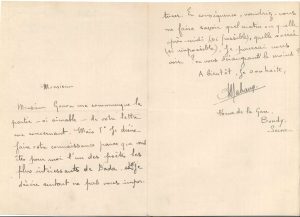 Monsieur
Monsieur me communique la
partie - si aimable - de votre lettre
me concernant. Mais 1° Je désire
faire votre connaissance parce que vous
êtes pour moi l'un des poètes les
plus intéressants de Dada. Je
désire surtout ne pas vous impor-
tuner. En conséquence, voudriez-vous
me faire savoir quel matin ou quelle
après-midi (si possible), quelle soirée
(si impossible), je pourrai vous
voir en vous dérangeant le moins
A bientôt, je souhaite,
de la Gare.
Bondy.
Seine.